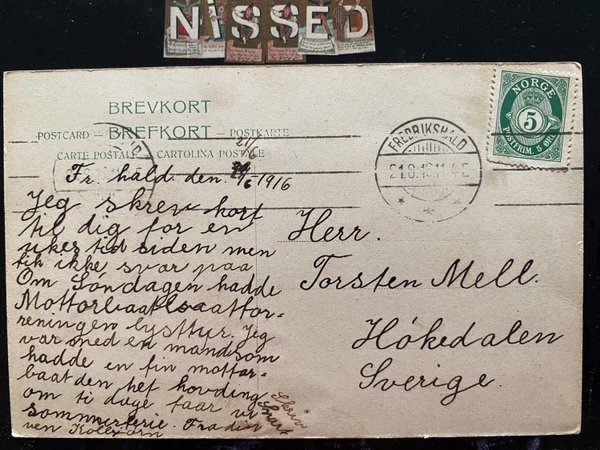 NISSED
BREVKORT
POSTCARD — BREFKORT — POSTKARTE
CARTE POSTALE CARTOLINA POSTALE
FREDRIKSHALD
21.8.16.11-4E
NORGE
5
POSTFRIM. 5 ØRE
21/6
Fr. hald den /6 1916
Jeg skrev kort
til dig for en
ukes tid siden men
fik ikke svar paa
Om Søndagen hadde
Mottorbaat
reningen lysttur. Jeg
var med en mand som
hadde en fin mottor-
baat den het hovding
om ti dage faar vi
sommerferie. Fra din
ven
Skriv
snart
Herr.
Torsten Mell.
Høkedalen
Sverige.